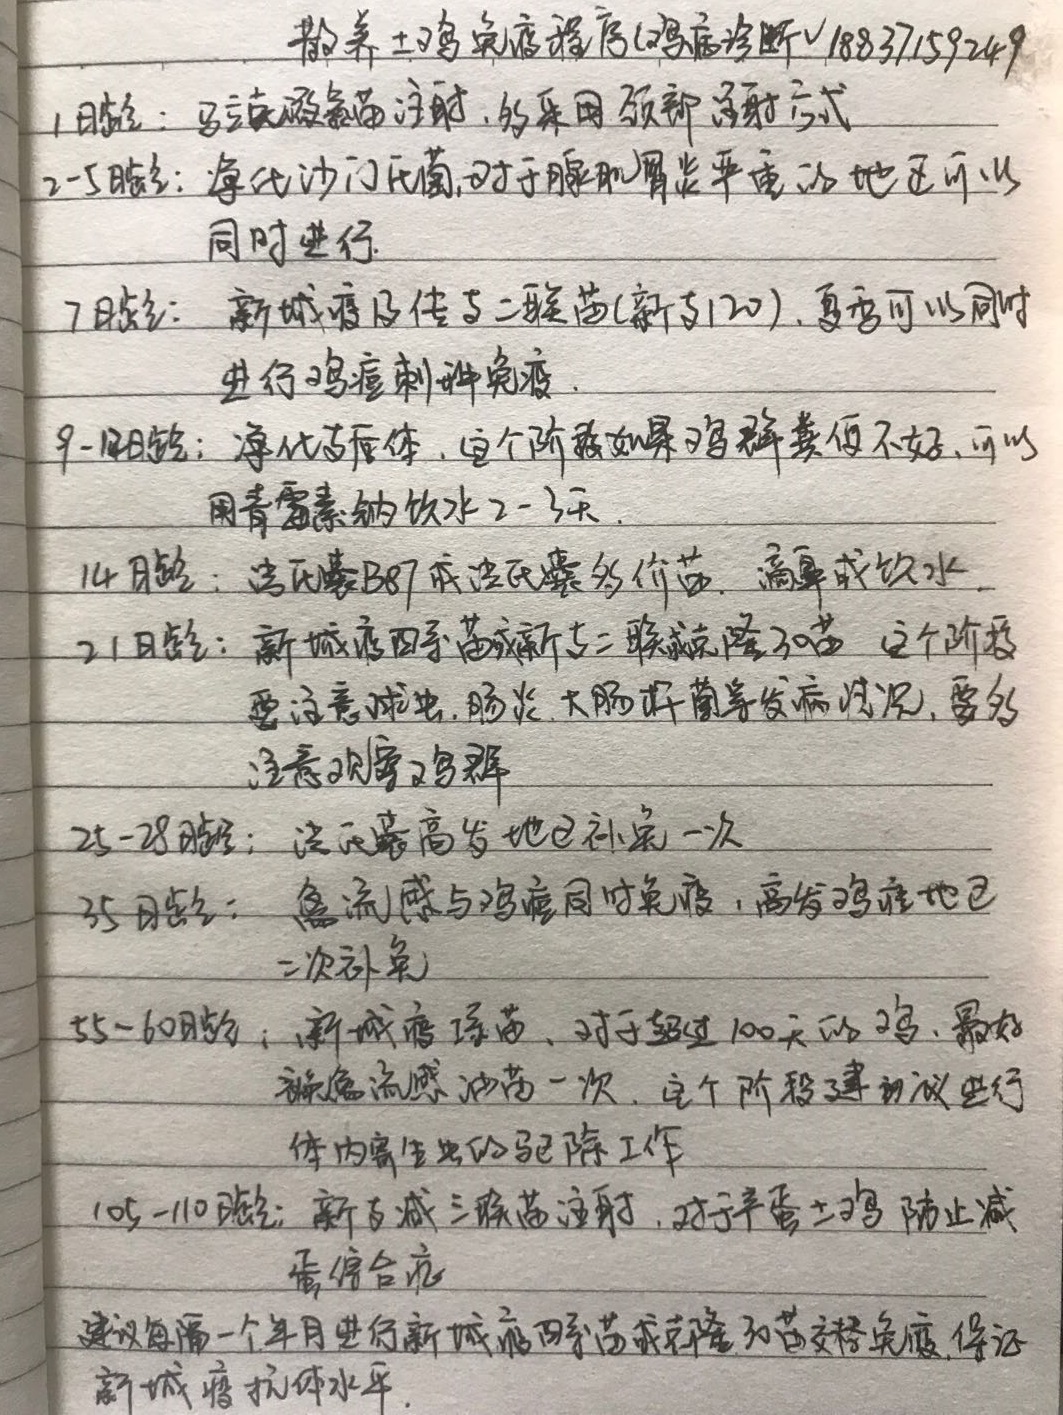 散养土鸡免疫程序(鸡病诊断v18837159249
1日龄：马立克液氮苗注射，多采用颈部注射方式
2-5日龄：净化沙门氏菌，对于腺肌胃炎严重的地区可以
同时进行.
7日龄：新城疫及传支二联苗(新支120)、夏季可以同时
进行鸡痘刺种免疫.
9-12日龄：净化支原体，这个阶段如果鸡群粪便不好，可以
用青霉素钠饮水2-3天.
14日龄：法氏囊B87或法氏囊多价苗，滴鼻或饮水.
21日龄：新城疫四系苗或新支二联或克隆30苗 这个阶段
要注意球虫，肠炎，大肠杆菌等发病情况，要多
注意观察鸡群
25-28日龄：法氏囊高发地区补免一次
35日龄：禽流感与鸡痘同时免疫，高发鸡痘地区
二次补免
55-60日龄：新城疫I系苗，对于超过100天的鸡，最好
禽流感油苗一次，这个阶段建议进行
体内寄生虫的驱除工作
105-110日龄：新支减三联苗注射，对于产蛋土鸡防止减
蛋综合症
建议每隔一个半月进行新城疫四系苗或克隆30苗交替免疫，保证
新城疫抗体水平.